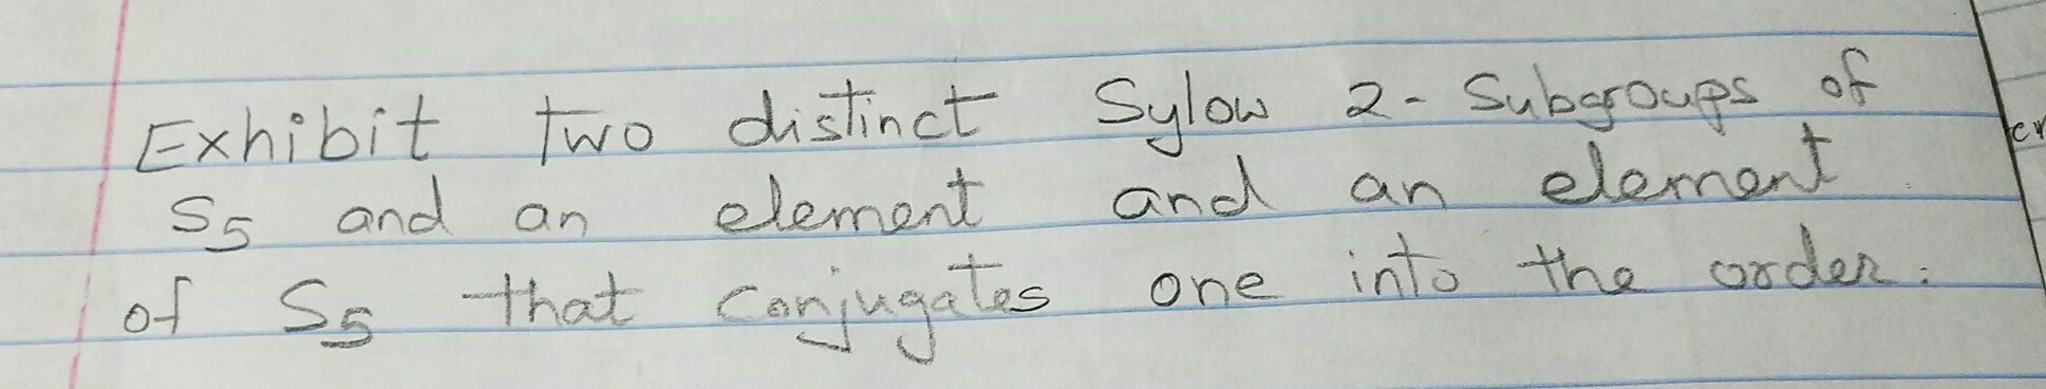 Exhibit two distinct Sylow 2-Subgroups of
S5 and an element and an element
of S5 that conjugates one into the order.